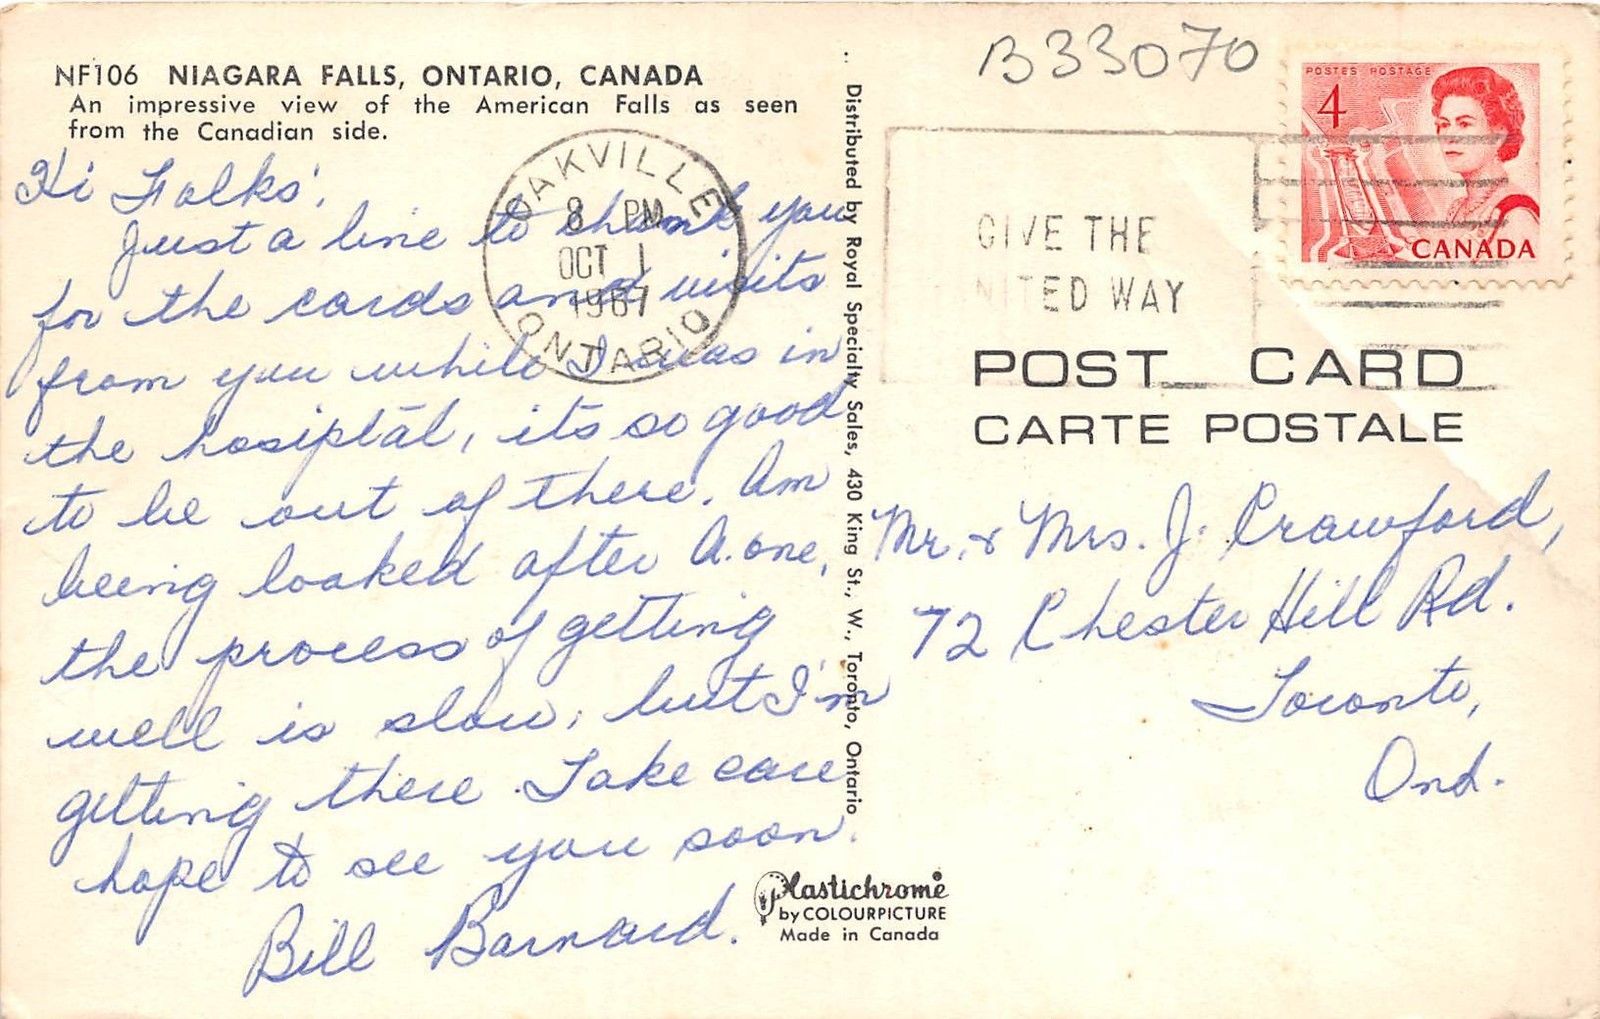 NF106 NIAGARA FALLS, ONTARIO, CANADA
An impressive view of the American Falls as seen
from the Canadian side.
Hi Folks!,
Just a line to thank you
for the cards and visits
from you while I was in
the hosiptal, its so good
to be out of there. Am
being looked after A. one,
the process of getting
well is slow, but I'm
getting there. Take care
hope to see you soon.
Bill Barnard.
OAKVILLE
8 PM
OCT 1
1967
ONTARIO
Distributed by Royal Specialty Sales, 430 King St., W., Toronto, Ontario
Plastichrome
by COLOURPICTURE
Made in Canada
B33070
POSTES POSTAGE
4
CANADA
GIVE THE
NITED WAY
POST CARD
CARTE POSTALE
Mr. & Mrs. J. Crawford,
72 Chester Hill Rd.
Toronto,
Ond.